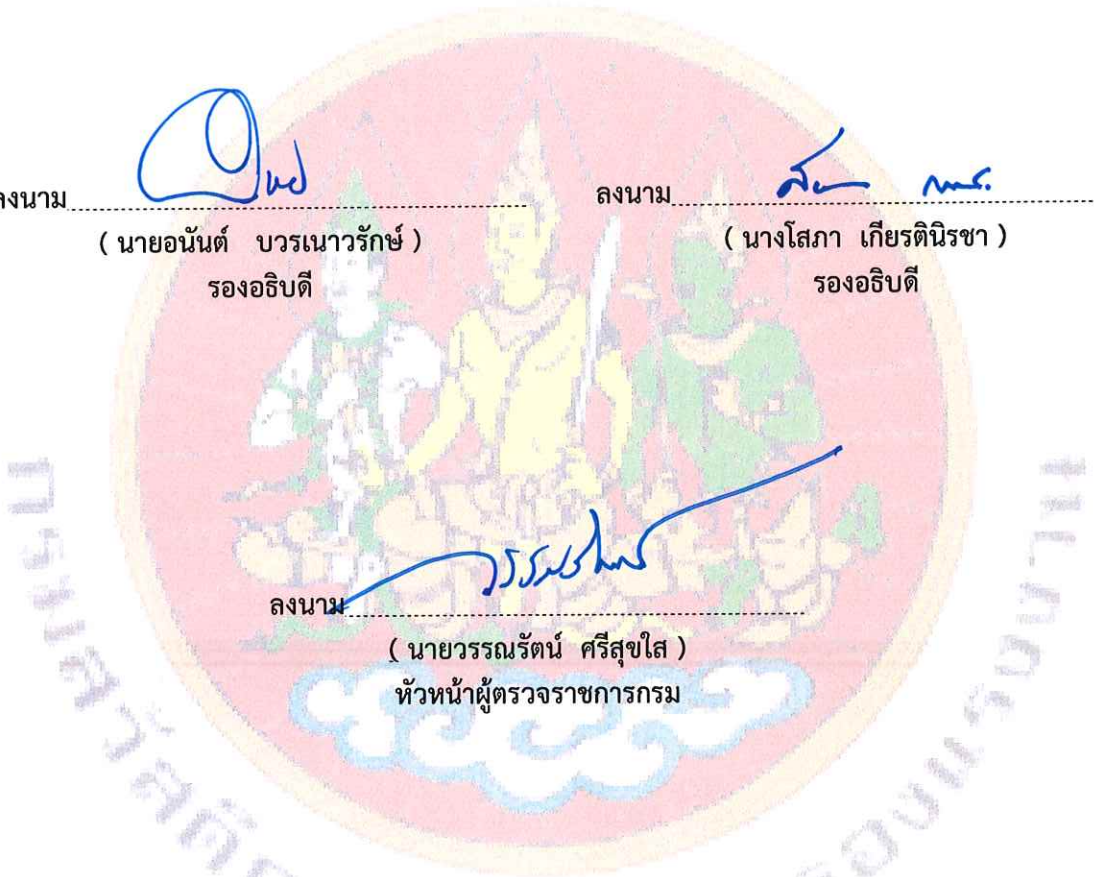 ลงนาม
( นายอนันต์ บวรเนาวรักษ์ )
รองอธิบดี
ลงนาม
( นางโสภา เกียรตินิรชา )
รองอธิบดี
ลงนาม
( นายวรรณรัตน์ ศรีสุขใส )
หัวหน้าผู้ตรวจราชการกรม